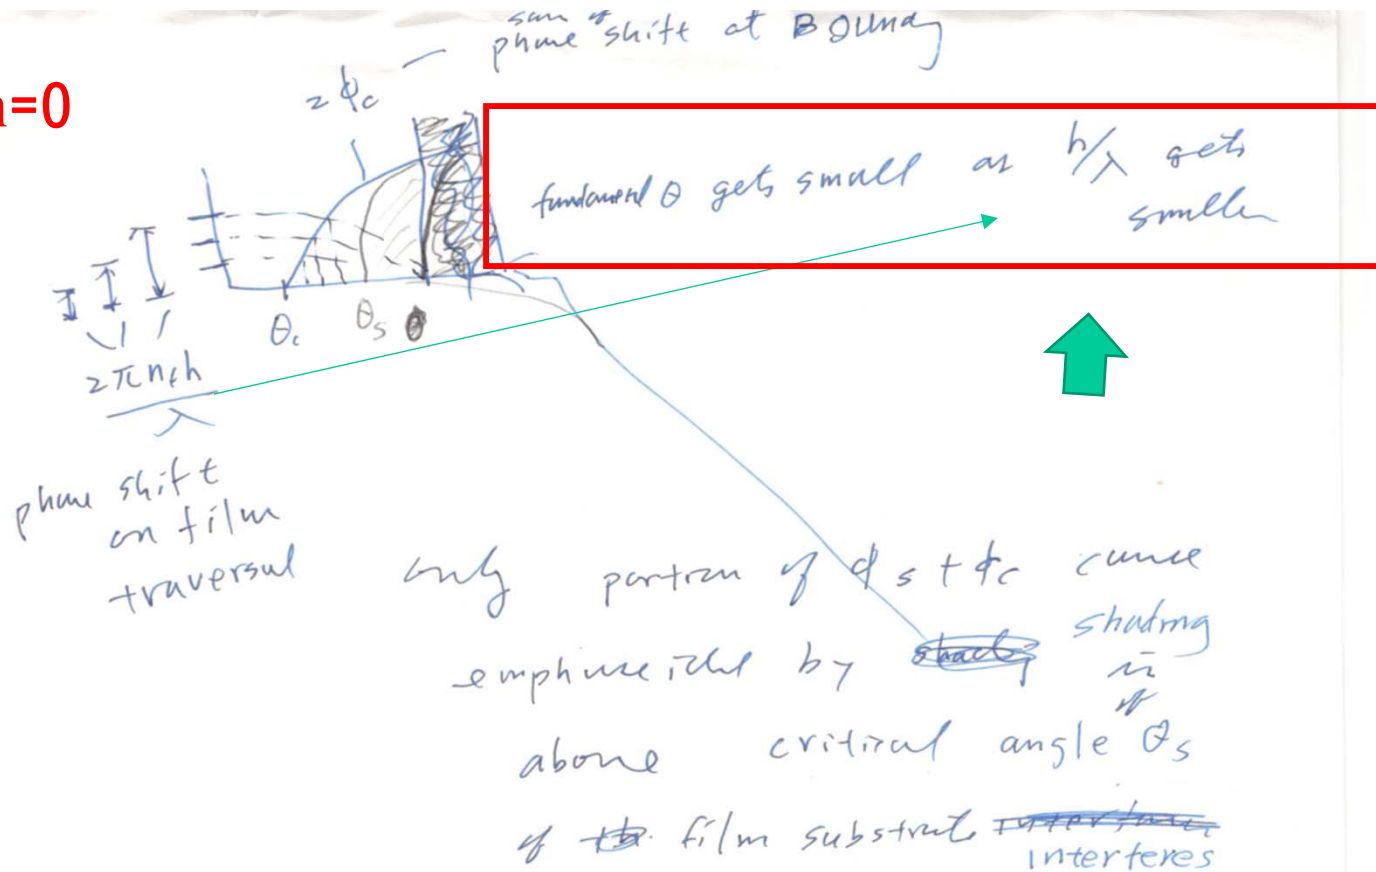 sum of
phase shift at Bound
n=0
2ϕc
fundamental θ gets small as h/λ gets
smaller
θc θs θ
2πnfh
λ
phase shift
on film
traversal
only portion of ϕs + ϕc curve
emphasized by shading
is
of
above critical angle θs
of film substrate
interferes